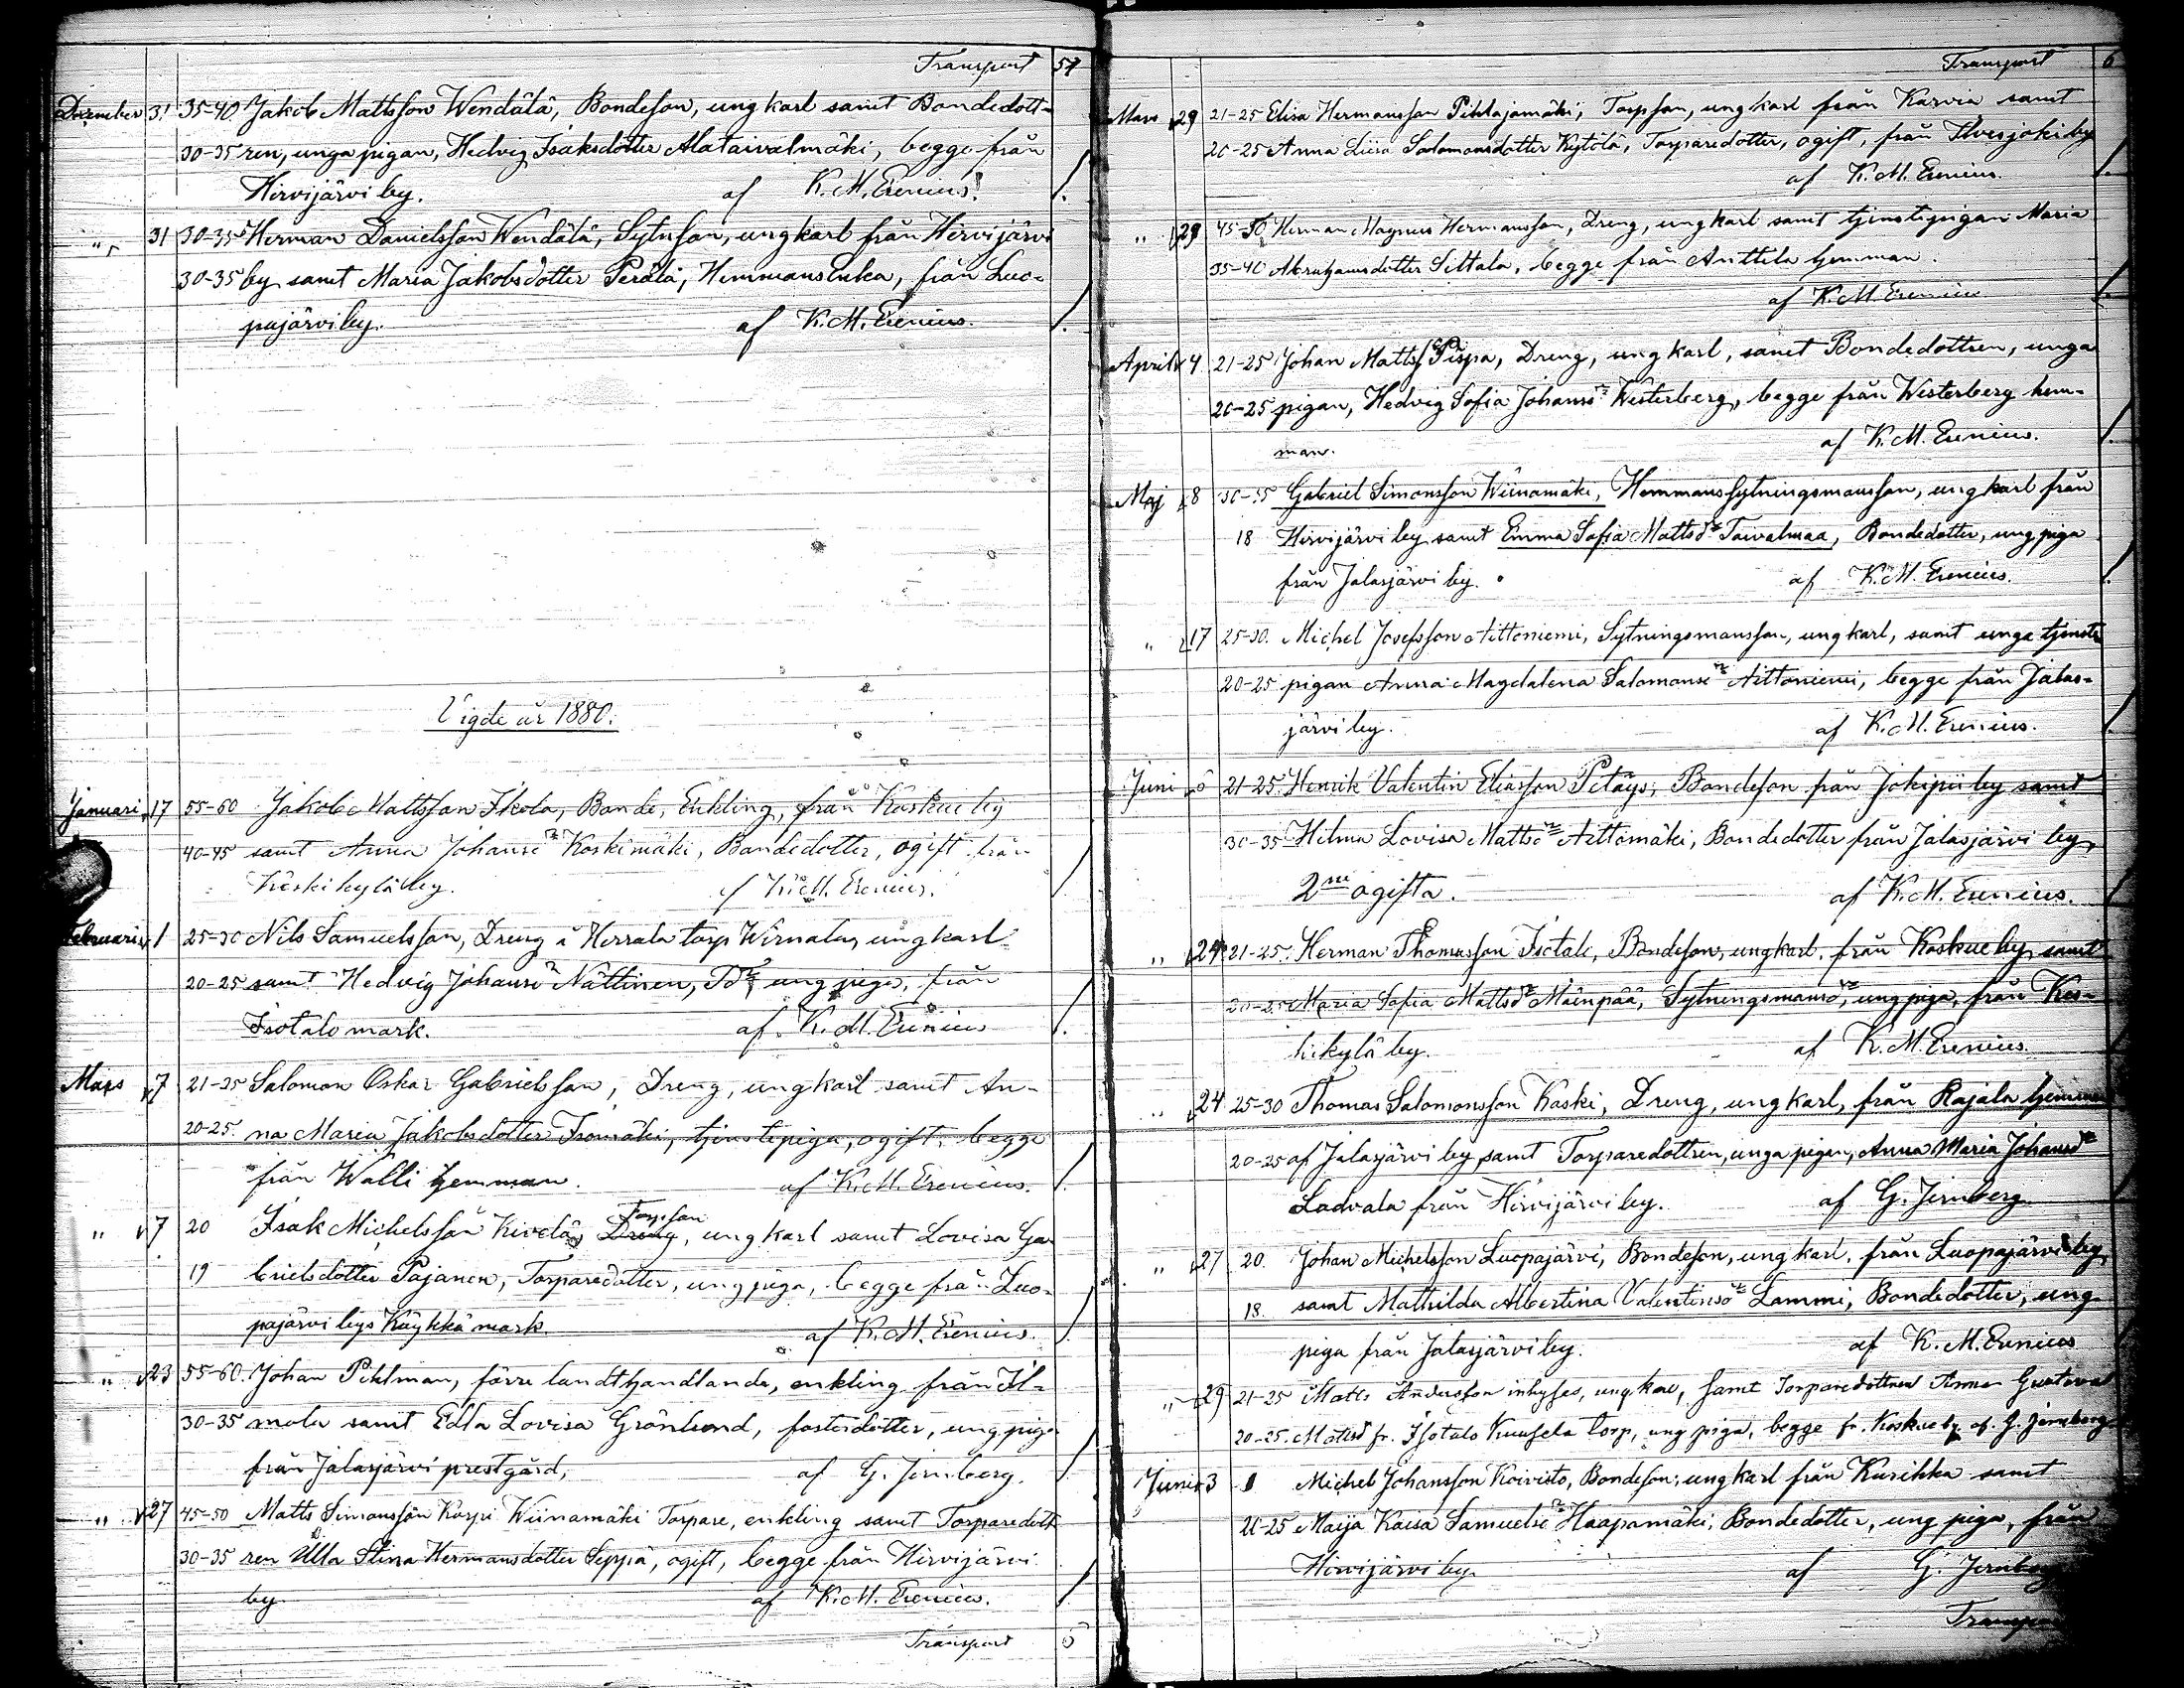 Transport 57
December 31 35-40 Jakob Mattsson Wendälä, Bondeson, ungkarl samt Bondedott-
30-35 ren, unga pigan, Hedvig Isaksdotter Alataivalmäki, begge från
Hirvijärvi by. af K. M. Erenius. 1.
" 31 30-35 Herman Danielsson Wendälä, Sytnson, ungkarl från Hirvijärvi
30-35 by samt Maria Jakobsdotter Perälä, Hemmansenka, från Luo-
pajärvi by. af K. M. Erenius. 1.
Vigde år 1880.
Januari 17 55-60 Jakob Mattsson Ikola, Bonde, Enkling, från Koskue by
40-45 samt Anna Johansdr Koskimäki, Bondedotter, ogift från
Keskikylä by. af K. M. Erenius. 1
Februari 1 25-30 Nils Samuelsson, Dreng å Herrala torp Wirnalas ungkarl
20-25 samt Hedvig Johansdr Nättinen, Tdr, ung piga, från
Isotalo mark. af K. M. Erenius 1.
Mars 7 21-25 Salomon Oskar Gabrielsson, Dreng, ungkarl samt An-
20-25. na Maria Jakobsdotter Isomäki, tjenstepiga, ogift, begge
från Walli hemman. af K. M. Erenius. 1.
" 7 20 Isak Michelsson Kivelä, Dreng Torpson, ungkarl samt Lovisa Ga-
19 brielsdotter Pajanen, Torparedotter, ung piga, begge från Luo-
pajärvi bys Käykkä mark. af K. M. Erenius. 1
" 23 55-60. Johan Pihlman, förre landthandlande, enkling från Il-
30-35 mola samt Edla Lovisa Grönlund, fosterdotter, ung piga
från Jalasjärvi prestgård, af G. Jernberg. 1
" 27 45-50 Matts Simonsson Korpi Wiinamäki Torpare, enkling samt Torparedott-
30-35 ren Ulla Stina Hermansdotter Seppä, ogift, begge från Hirvijärvi
by. af K. M. Erenius. 1.
Transport 6
Transport 6
Mars 29 21-25 Elisa Hermansson Pihlajamäki, Torpson, ungkarl från Karvia samt
20-25 Anna Liisa Salomonsdotter Kytölä, Torparedotter, ogift, från Ilvesjoki by
af K. M. Erenius. 1.
" 29 45-50 Herman Magnus Hermansson, Dreng, ungkarl samt tjenstepigan Maria
35-40 Abrahamsdotter Siltala, begge från Anttila hemman.
af K. M. Erenius 1.
April 4 21-25 Johan Mattss Pispa, Dreng, ungkarl, samt Bondedottren, unga
20-25 pigan, Hedvig Sofia Johansdr Westerberg, begge från Westerberg hem-
man. af K. M. Erenius. 1.
Maj 8 30-35 Gabriel Simonsson Wiinamäki, Hemmanssytningsmansson, ungkarl från
18 Hirvijärvi by samt Emma Sofia Mattsdr Taivalmaa, Bondedotter, ung piga
från Jalasjärvi by. af K. M. Erenius. 1.
" 17 25-30. Michel Josefsson Aittoniemi, Sytningsmansson, ungkarl, samt unga tjenste
20-25 pigan Anna Magdalena Salomonsdr Aittoniemi, begge från Jalas-
järvi by. af K. M. Erenius. 1.
Juni 6 21-25 Henrik Valentin Eliasson Petäys, Bondeson från Jokipii by samt
30-35 Hilma Lovisa Mattsdr Aittomäki, Bondedotter från Jalasjärvi by,
2ne ogifta. af K. M. Erenius. 1
" 24 21-25. Herman Thomasson Isotalo, Bondeson, ungkarl, från Koskue by, samt
20-25 Maria Sofia Mattsdr Mäenpää, Sytningsmansdr, ung piga, från Kes-
kikylä by. af K. M. Erenius 1.
" 24 25-30 Thomas Salomonsson Kaski, Dreng, ungkarl, från Rajala hemman
20-25 af Jalasjärvi by, samt Torparedottren, unga pigan, Anna Maria Johansdr
Ladvala från Hirvijärvi by. af G. Jernberg 1
" 27 20. Johan Michelsson Luopajärvi, Bondeson, ungkarl, från Luopajärvi by
18. samt Mathilda Albertina Valentinsdr Lammi, Bondedotter, ung
piga från Jalasjärvi by. af K. M. Erenius
" 29 21-25 Matts Andersson inhyses, ungkarl, samt Torparedottren Anna Gustava
20-25. Mattsd fr. Isotalo Kuusela torp, ung piga, begge fr. Koskue by. af G. Jernberg
Juni 3 Michel Johansson Koivisto, Bondeson, ungkarl från Kurikka samt
21-25 Maija Kaisa Samuelsdr Haapamäki, Bondedotter, ung piga, från
Hirvijärvi by. af G. Jernberg
Transport